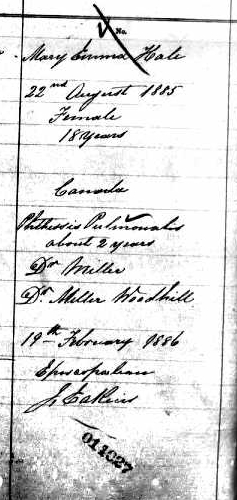 No.
Mary Emma Hale
22nd August 1885
Female
18 years
Canada
Phthessis Pulmonalis
about 2 years
Dr Miller
Dr Miller Woodhill
19th February 1886
Episcopalian
J. Eakins
011027